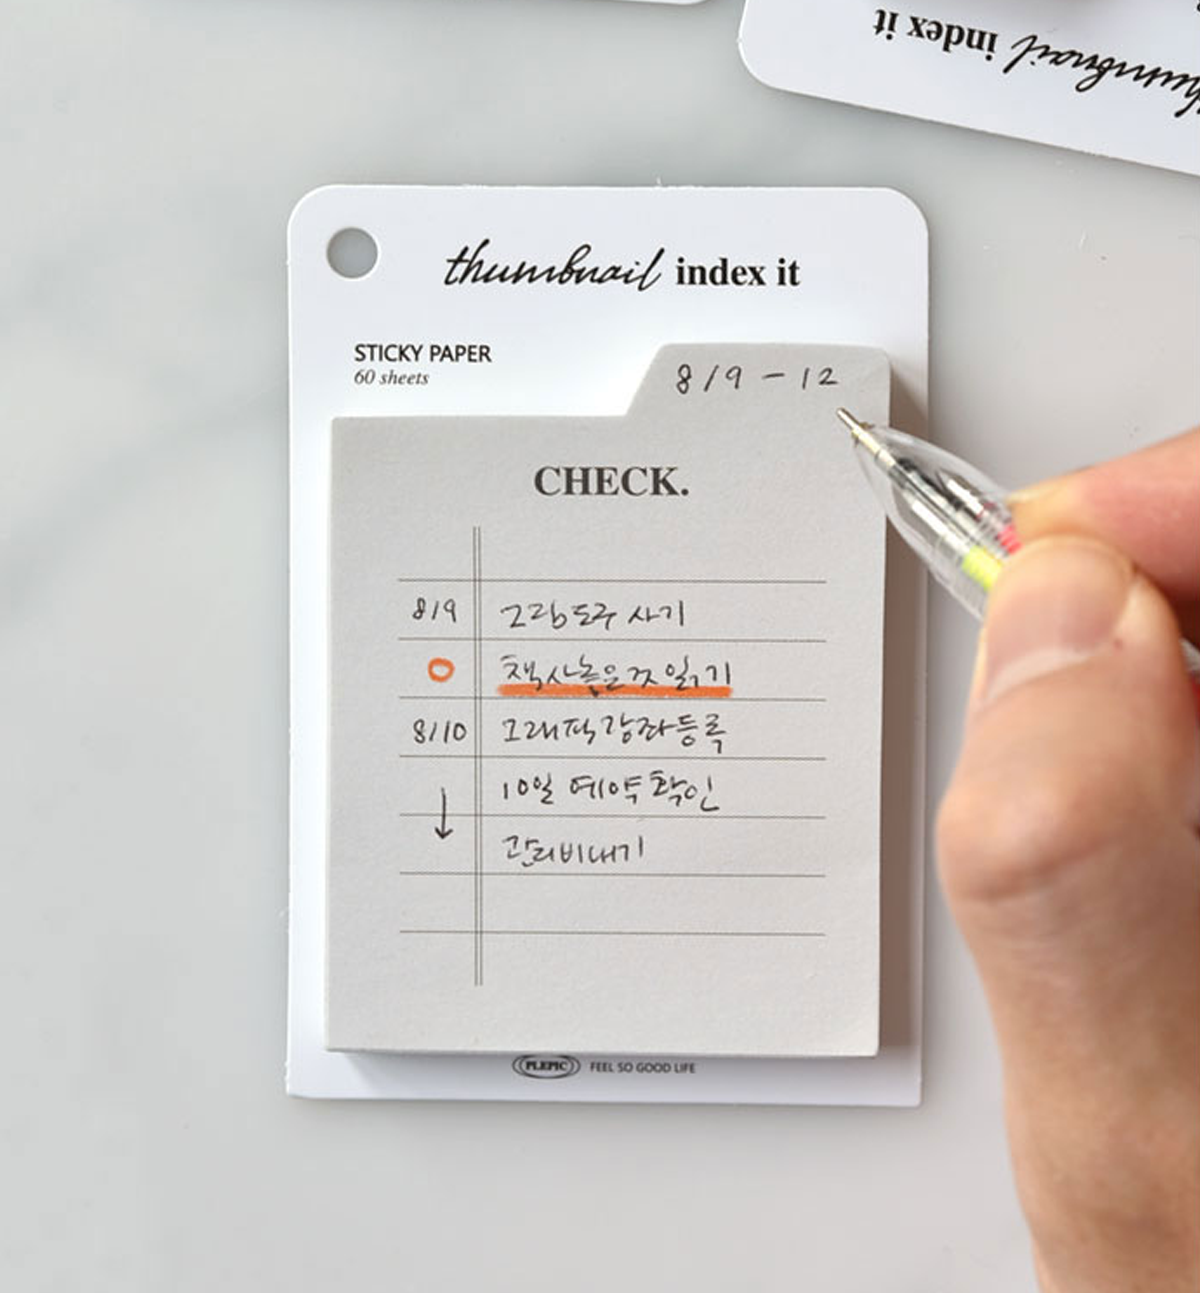 thumbnail index it
thumbnail index it
STICKY PAPER
60 sheets
8/9 - 12
CHECK.
8/9 그림도구 사기
책 사놓은 것 읽기
8/10 그래픽 강좌 등록
10일 예약 확인
관리비 내기
PLEPIC FEEL SO GOOD LIFE